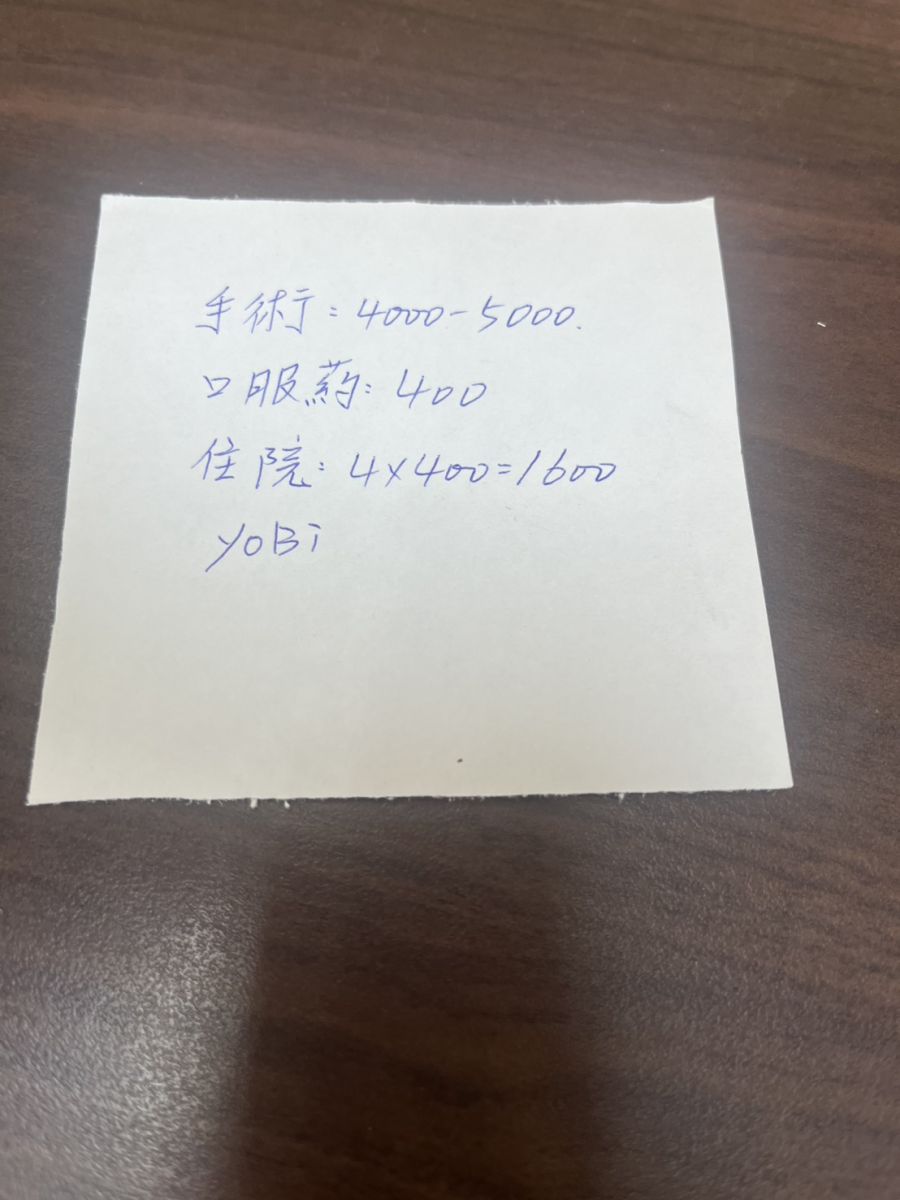 手術: 4000-5000.
口服藥: 400
住院: 4×400=1600
yoBi